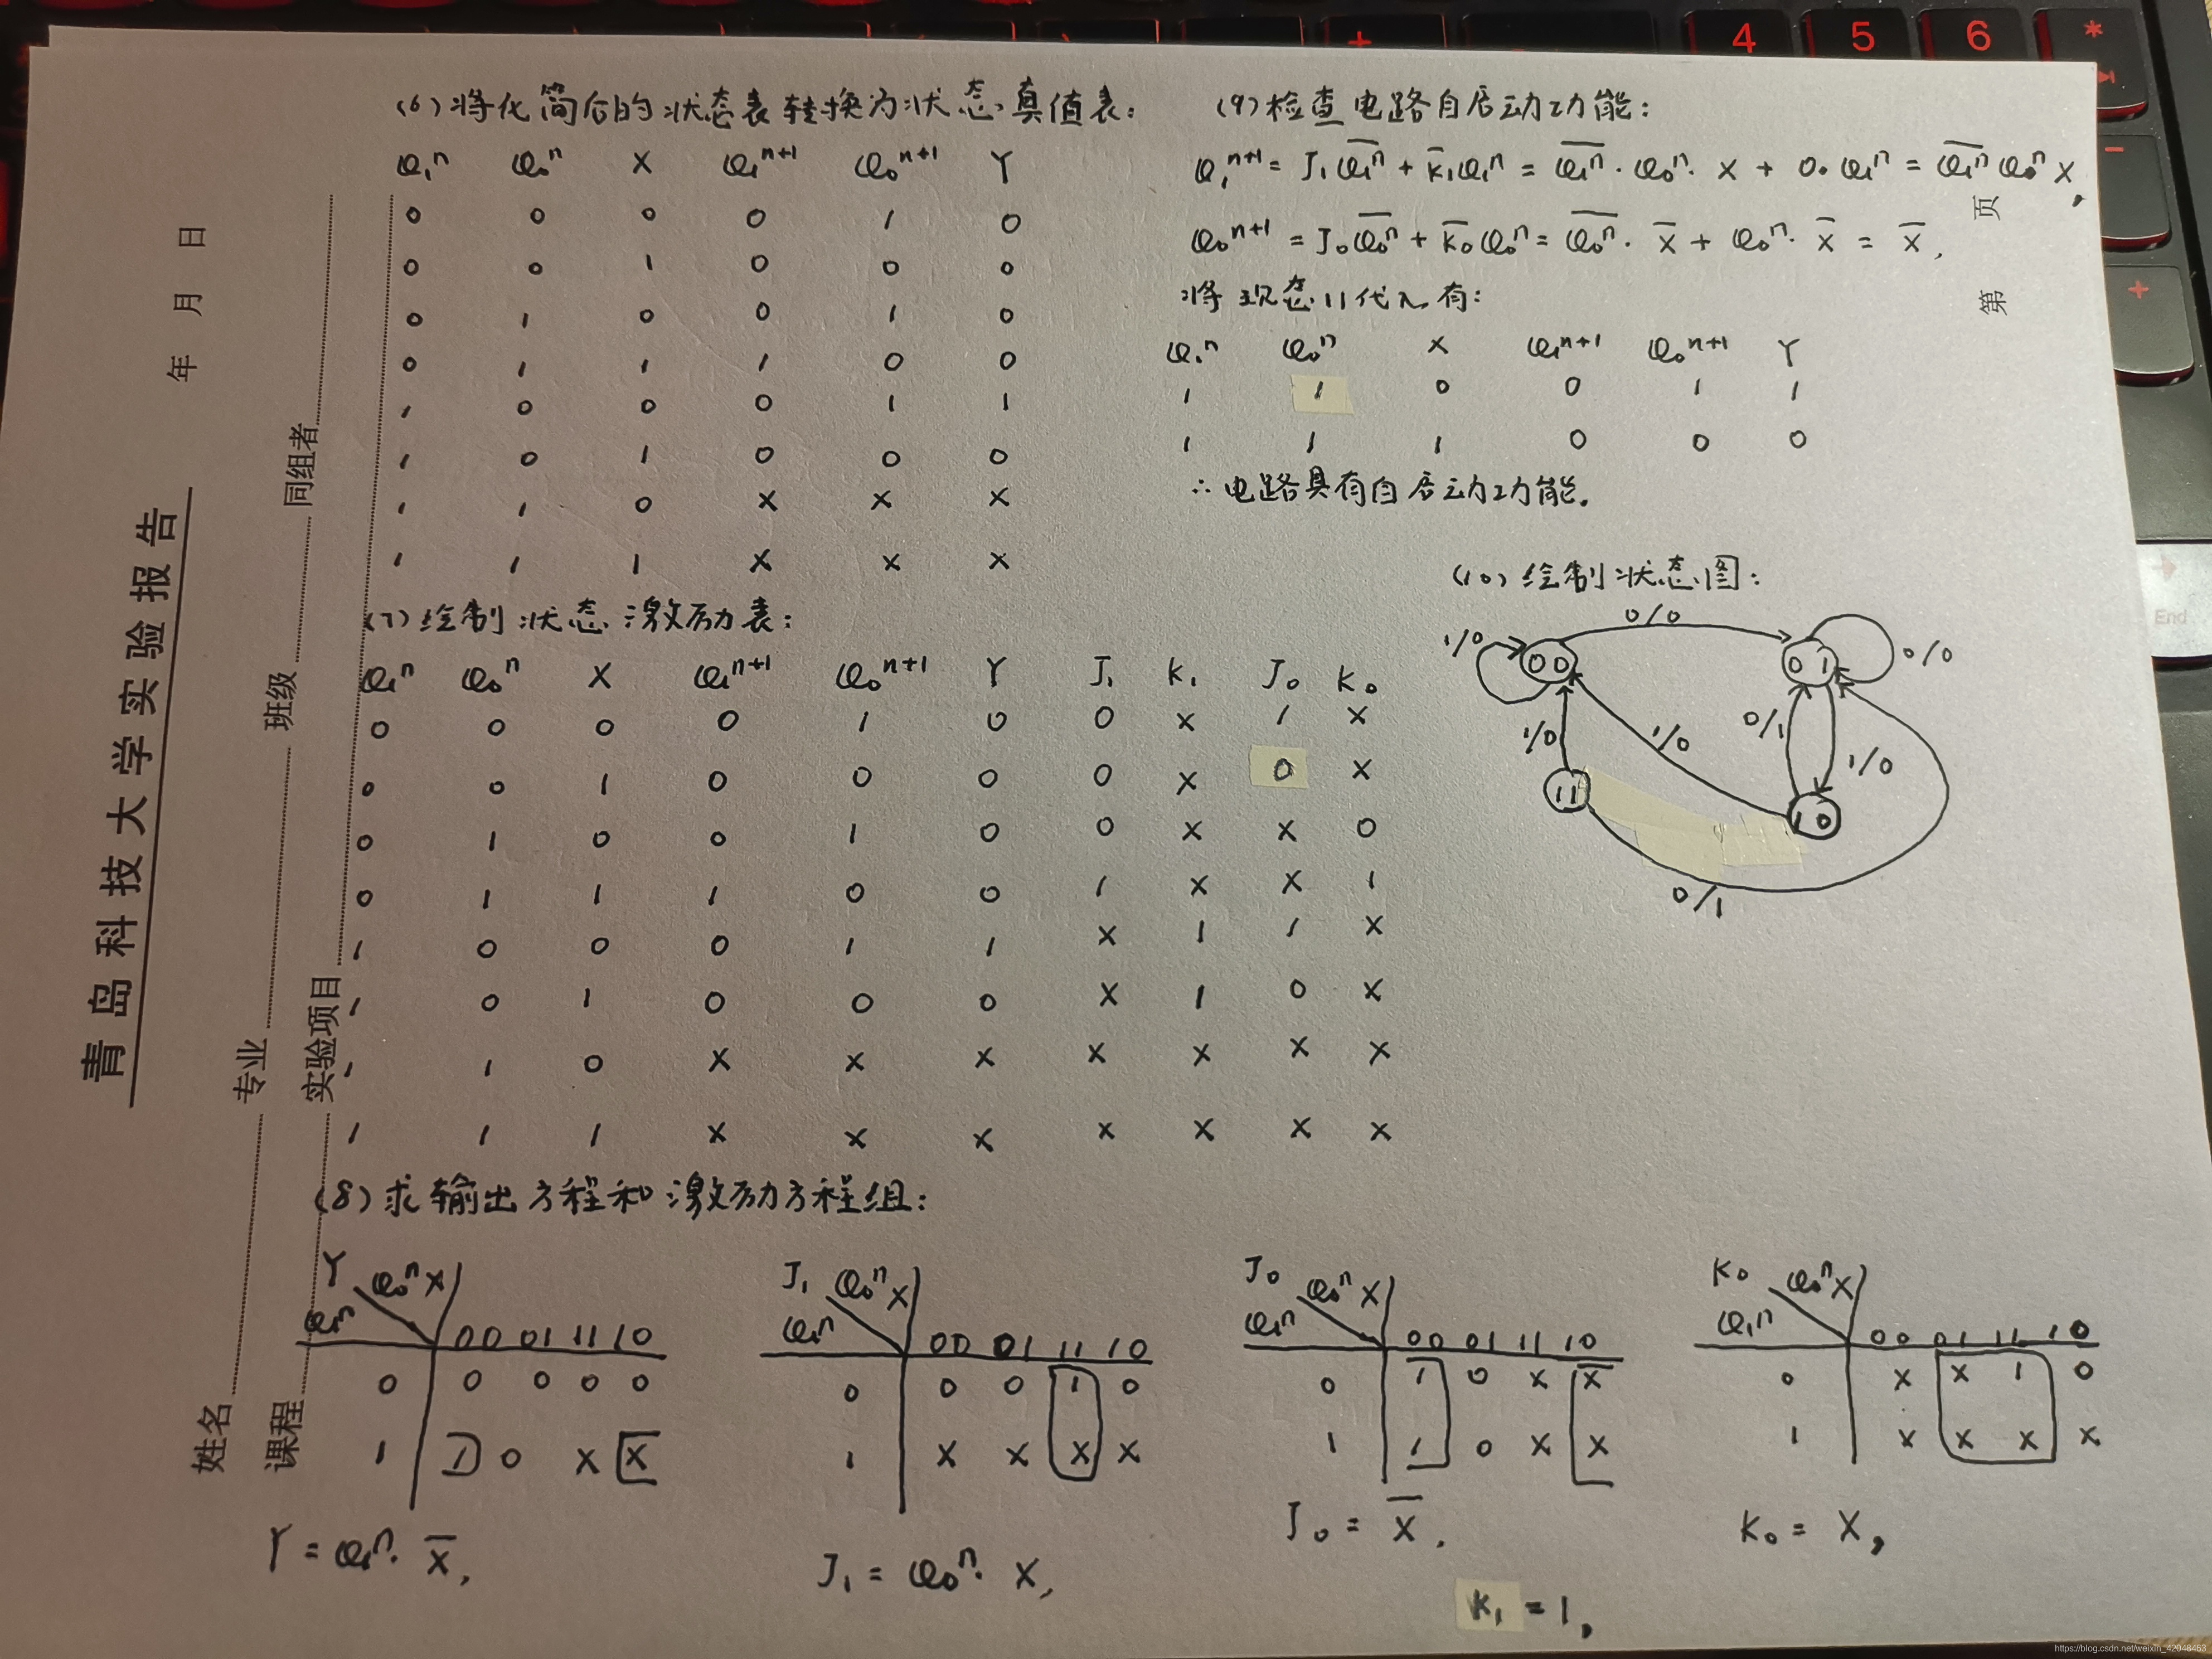 4 5 6 *
+ -
+
End
青岛科技大学实验报告
年 月 日
姓名 专业 班级 同组者
课程 实验项目
第 页
(6) 将化简后的状态表转换为状态真值表:
Q₁ⁿ Q₀ⁿ X Q₁ⁿ⁺¹ Q₀ⁿ⁺¹ Y
0 0 0 0 1 0
0 0 1 0 0 0
0 1 0 0 1 0
0 1 1 1 0 0
1 0 0 0 1 1
1 0 1 0 0 0
1 1 0 X X X
1 1 1 X X X
(7) 绘制状态激励表:
Q₁ⁿ Q₀ⁿ X Q₁ⁿ⁺¹ Q₀ⁿ⁺¹ Y J₁ K₁ J₀ K₀
0 0 0 0 1 0 0 X 1 X
0 0 1 0 0 0 0 X 0 X
0 1 0 0 1 0 0 X X 0
0 1 1 1 0 0 1 X X 1
1 0 0 0 1 1 X 1 1 X
1 0 1 0 0 0 X 1 0 X
1 1 0 X X X X X X X
1 1 1 X X X X X X X
(8) 求输出方程和激励方程组:
Y Q₀ⁿX
Q₁ⁿ 00 01 11 10
0 0 0 0 0
1 1 0 X X
Y = Q₁ⁿ · X̅,
J₁ Q₀ⁿX
Q₁ⁿ 00 01 11 10
0 0 0 1 0
1 X X X X
J₁ = Q₀ⁿ · X,
J₀ Q₀ⁿX
Q₁ⁿ 00 01 11 10
0 1 0 X X
1 1 0 X X
J₀ = X̅.
K₀ Q₀ⁿX
Q₁ⁿ 00 01 11 10
0 X X 1 0
1 X X X X
K₀ = X,
K₁ = 1,
(9) 检查电路自启动功能:
Q₁ⁿ⁺¹ = J₁Q̅₁ⁿ + K̅₁Q₁ⁿ = Q̅₁ⁿ · Q₀ⁿ · X + 0 · Q₁ⁿ = Q̅₁ⁿ Q₀ⁿ X,
Q₀ⁿ⁺¹ = J₀Q̅₀ⁿ + K̅₀Q₀ⁿ = Q̅₀ⁿ · X̅ + Q₀ⁿ · X̅ = X̅,
将现态11代入有:
Q₁ⁿ Q₀ⁿ X Q₁ⁿ⁺¹ Q₀ⁿ⁺¹ Y
1 1 0 0 1 1
1 1 1 0 0 0
∴ 电路具有自启动功能.
(10) 绘制状态图:
0/0
1/0 00 01 0/0
1/0 1/0 0/1 1/0
11 10
0/1
https://blog.csdn.net/weixin_42048463